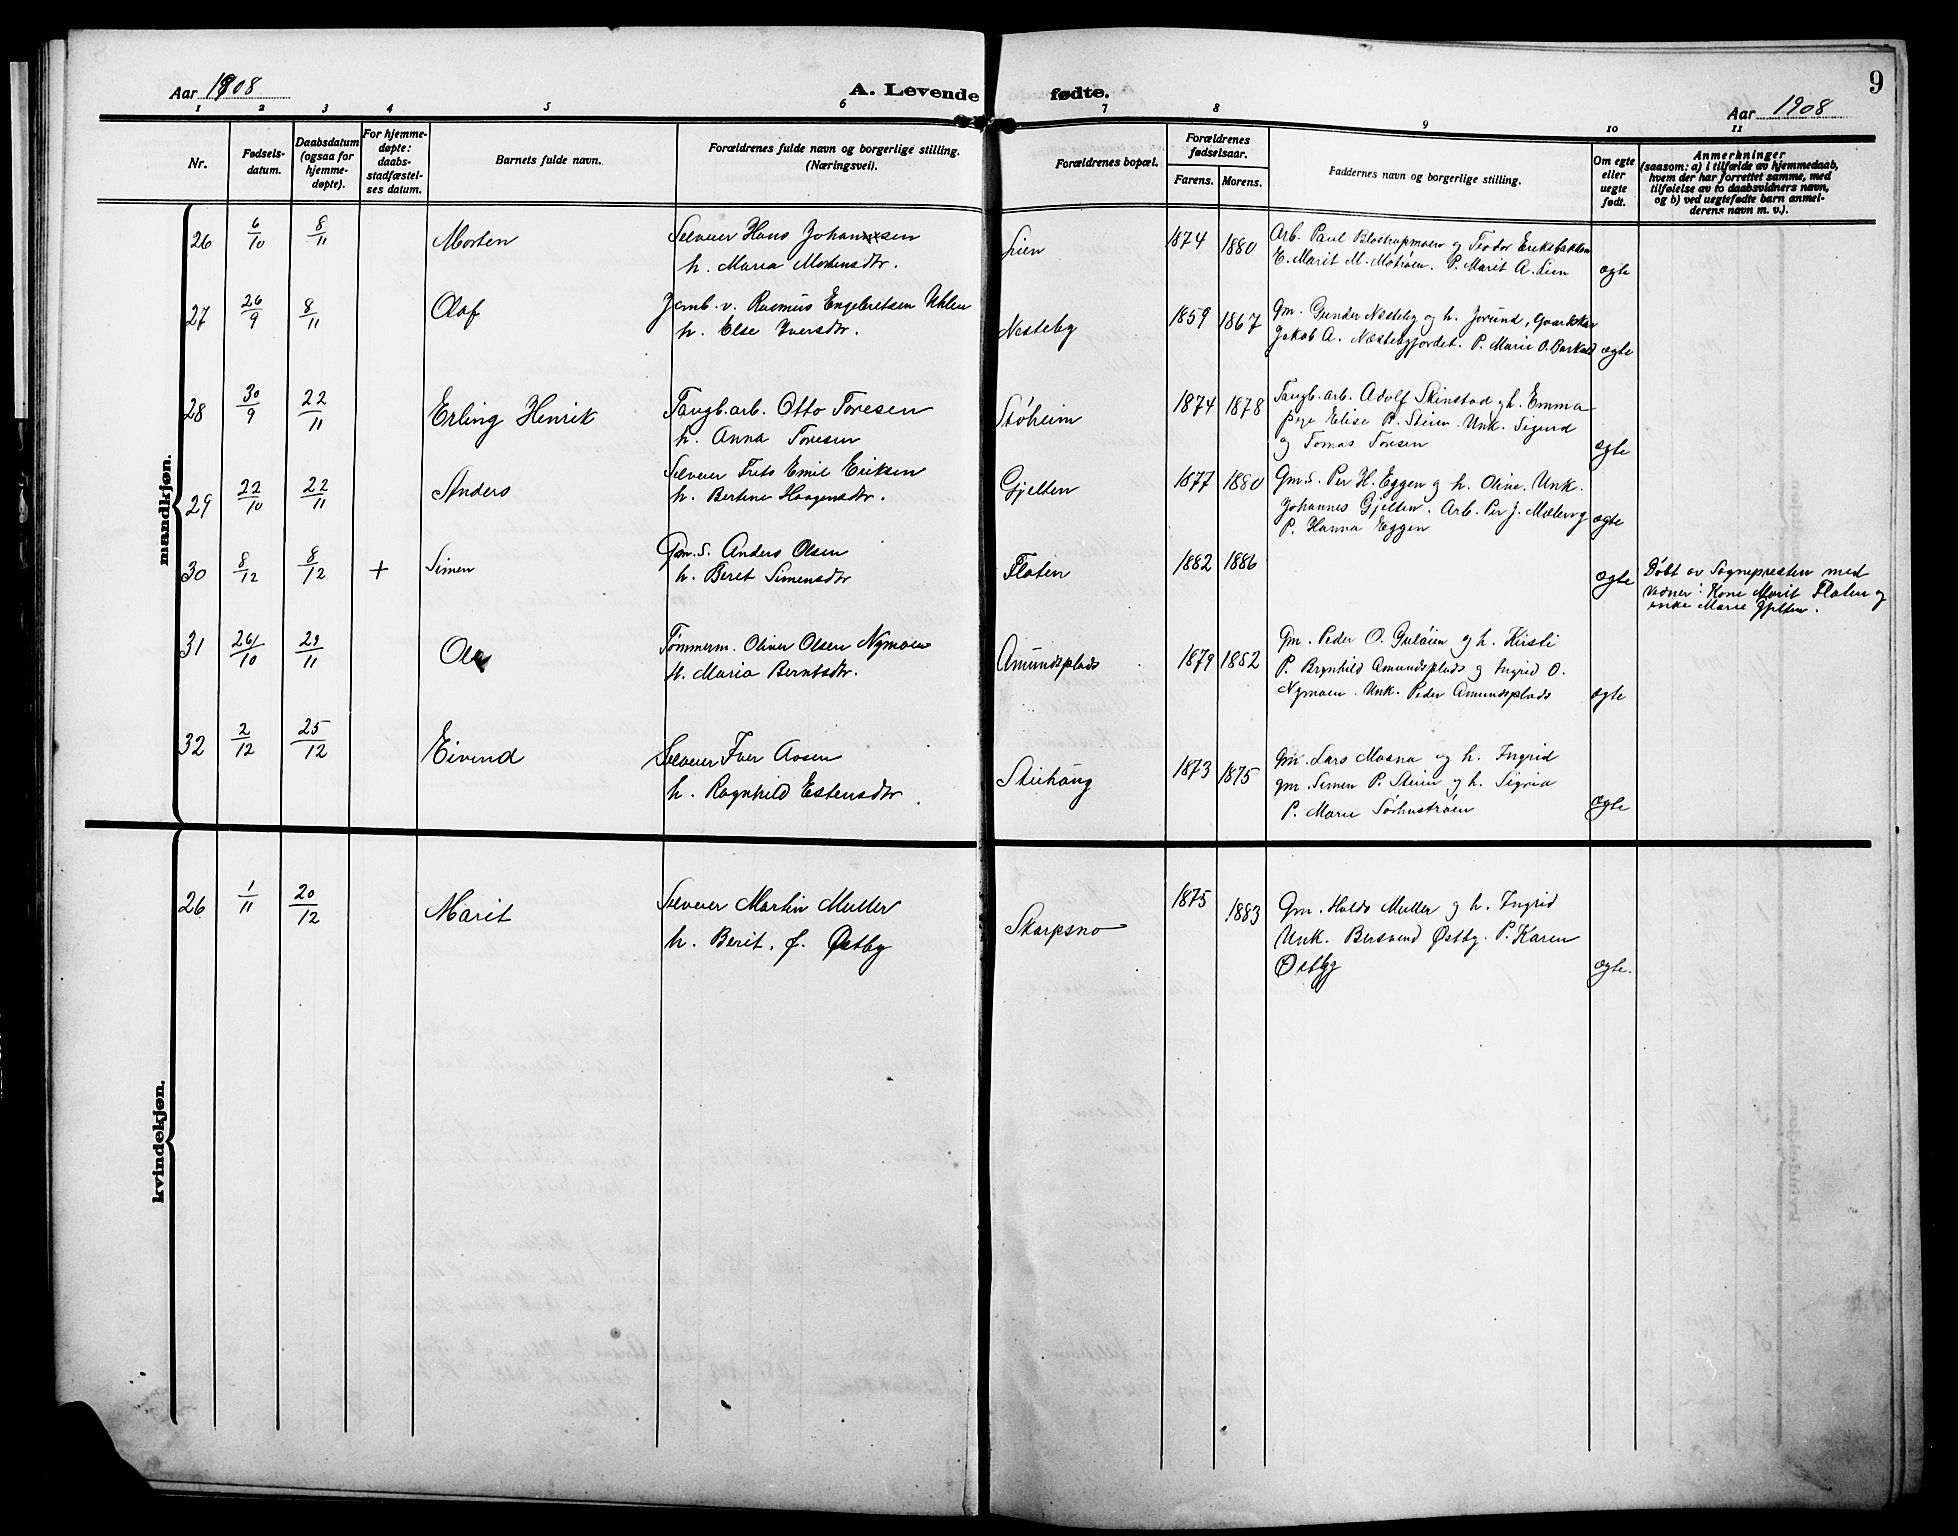 Aar 1908
A. Levende fødte.
9
Aar 1908
1 2 3 4 5 6 7 8 9 10 11
Nr.
Fødsels-
datum.
Daabsdatum
(ogsaa for
hjemme-
døpte).
For hjemme-
døpte:
daabs-
stadfæstel-
ses datum.
Barnets fulde navn.
Forældrenes fulde navn og borgerlige stilling.
(Næringsvei).
Forældrenes bopæl.
Forældrenes
fødselsaar.
Farens. Morens.
Faddernes navn og borgerlige stilling.
Om egte
eller
uegte
født.
Anmerkninger
(saasom: a) i tilfælde av hjemmedaab,
hvem der har forrettet samme, med
tilføielse av to daabsvidners navn,
og b) ved uegtefødte barn anmel-
derens navn m. v.).
mandkjøn.
26 6/10 8/11 Morten
Selveier Hans Johannsen
h. Maria Mortensdtr.
Lien 1874 1880
Arb. Paul Blostrupmoen og Teodor Eriksbakken
E. Marit M. Motrøen. P. Marit A. Lien
egte
27 26/9 8/11 Olaf
Jernb. v. Rasmus Engebretsen Uhlen
h. Else Iversdtr.
Nesteby 1859 1867
Gm. Gunder Nesteby og h. Jorund,
Jakob A. Næstebyjordet. P. Marie O. Barkald
egte
28 30/9 22/11 Erling Henrik
Teglb. arb. Otto Toresen
h. Anna Toresen
Støheim 1874 1878
arb. Adolf Skinstad og h. Emma
pige Elise P. Steien. Unk. Sigurd
og Tomas Toresen
egte
29 22/10 22/11 Anders
Selveier Frets Emil Eriksen
h. Bertine Haagensdtr.
Gjelten 1877 1880
Gm. S. Per H. Eggen og h. Oline. Unk.
Johannes Gjelten. Arb. Per J. Mæleng
P. Hanna Eggen
egte
30 8/12 8/12 + Simen
Gm. S. Anders Olsen
h. Beret Simensdtr
Floten 1882 1886
egte
Døbt av Sognepresten med
vidner: Kone Marit Floten og
enke Marie Gjelten.
31 26/10 29/11 Ole
Tømmerm. Oliver Olsen Nymoen
h. Maria Berntsdtr.
Amundsplads 1879 1882
Gm. Peder O. Guløien og h. Kirsti
P. Brynhild Amundsplads og Ingrid O.
Nymoen. Unk. Peder Amundsplads
egte
32 2/12 25/12 Eivend
Selveier Iver Aosen
h. Ragnhild Estensdtr.
Steihaug 1873 1875
Gm. Lars Mosna og h. Ingrid
gm. Simen P. Steien og h. Sigrid
P. Marie Sørhustrøen
egte
kvindekjøn.
26 1/11 20/12 Marit
Selveier Martin Muller
h. Berit, f. Østby
Skarpsno 1875 1883
Gm. Haldo Muller og h. Ingrid
Unk. Bersvend Østby. P. Karen
Østby
egte.